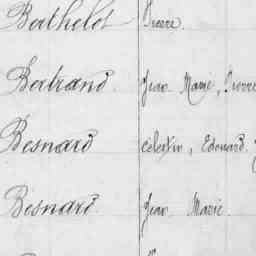 Berthelot Pierre.
Bertrand. Jean Marie, Pierre
Besnard Célestin, Edouard.
Besnard. Jean Marie.